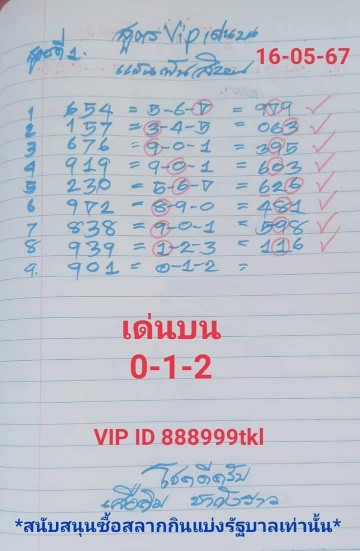 สูตร Vip เด่นบน
สูตรที่ 1.
16-05-67
1 654 = 5-6-7 = 979 ✓
2 157 = 3-4-5 = 063 ✓
3 676 = 9-0-1 = 395 ✓
4 919 = 9-0-1 = 603 ✓
5 230 = 5-6-7 = 625 ✓
6 972 = 8-9-0 = 481 ✓
7 838 = 9-0-1 = 598 ✓
8 939 = 1-2-3 = 116 ✓
9. 901 = 0-1-2 =
เด่นบน
0-1-2
VIP ID 888999tkl
โชคดีครับ
*สนับสนุนซื้อสลากกินแบ่งรัฐบาลเท่านั้น*